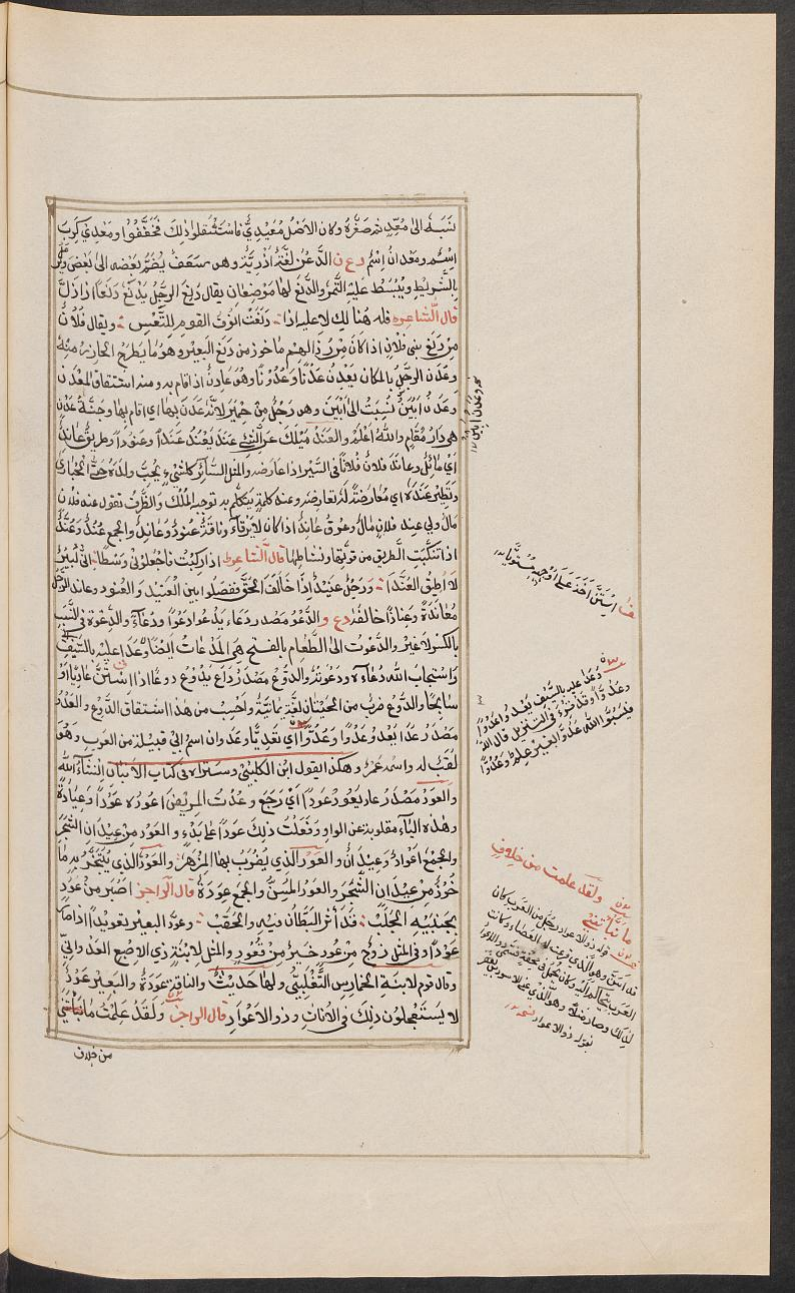 نسبه الى مُعَدٍّ ثم صَغَّرهُ وكان الاصل مُعَيْدِيٌّ فاستثقلوا ذلك فخففوا ومَعْدِي كَرِبَ
اسم ومَعْدان اسْم دعن الدَّعْن لُغَةٌ ازدية وهو سَعَف يُضَمُّ بعضه الى بَعْضٍ
بالشريط ويُبْسَط عليه التَّمر والدَّنَع لها موضعان يقال دَنِعَ الرجل يَدْنَع دَنَعًا اذا ذَلَّ
قال الشاعر فله هُنا لك لا عليه اذا دَنَعَتْ انوف القوم للتَّعْسِ ويقال فلان
من دَنَعِ بنى فلان اذا كان من رُذالهم ماخوذ من دَنَع البعير وهو ما يطرح الجازر منه
وعَدَن الرجل بالمكان يَعْدِن عَدْنًا وعُدُونًا وهو عادِن اذا اقام به ومنه اشتقاق المعْدِن
وعَدَن اَبْيَنَ نُسِبَتْ الى اَبْيَنَ وهو رجل من حِمْيَر لانه عَدَنَ بها اى اقام بها وجنة عَدْنٍ
هى دار مُقامٍ والله اعلم والعَنَد مَيْلك عن الشىء عَنَدَ يَعْنُد عَنَدًا وعنودًا وطريق عاند
اى مائل وعاند فلان فلانًا فى السير اذا عارضه والمثل السائر كل شىء يحب ولده حتى الحبارى
وتطير عَنَده اى معارضة له تعارضه وعند كلمة يتكلم به توجب الملك والظرف تقول عند فلان
مال ولى عند فلان مال وعرق عاند اذا كان لا يرقأ وناقة عنود وعاند والجمع عُنُد وعُنَّد
اذا تنكبت الطريق من قوتها ونشاطها قال الشاعر اذا ركبت فاجعلونى وسطا انى كبير
لا اطيق العُنَّدا ورجل عنيد اذا خالف الحق ففصلوا بين العنيد والعنود وعاند الرجل
معاندة وعنادًا خالفه دع و الدَّعْو مصدر دعاء يدعو دعوًا ودُعاءً والدِّعوة فى النسب
بالكسر لا غير والدعوت الى الطعام بالفتح هى المدعاة ايضًا وعدا عليه بالسيف
واستجاب الله دعاءه ودعوته والدَّوْع مصدر داع يدوع دوعًا اذا استن عاديًا او
سابحًا والدَّوع ضرب من الحيتان لغة يمانية واحسب من هذا اشتقاق الدوع والعدو
مصدر عدا يعدو عدوا وعُدُوًّا اى تعديًا وعدوان اسم ابى قبيلة من العرب وهو
لقب له واسمه عمرو هكذا يقول ابن الكلبى وستراه فى كتاب الانباز ان شاء الله
والعود مصدر عاد يعود عودًا اى رجع وعدت المريض اعوده عودًا وعيادة
وهذه الياء مقلوبة عن الواو وفعلت ذلك عودا على بدء والعود من عيدان الشجر
والجمع اعواد وعيدان والعود الذى يضرب بها المزهر والعود الذى يتبخر به ما
خوذ من عيدان الشجر والعَوْد المسن والجمع عِوَدة قال الراجز اصبر من عود
بجنبيه الجلب قد اثر البطان فيه والحقب وعوَّد البعير تعويدًا اذا صار
عودًا وفى المثل زوج من عود خير من قعود والمثل لابنة ذى الاصبع العدوانى
وقال قوم لابنة الخمارس التغلبى ولها حديث والناقة عودة والبعير عود
لا يستعملون ذلك فى الاناث وذو الاعواد قال الراجز ولقد علمت ما نبأتنى
من خلاف
عدن ابين
ف استن اخذ على وجه
وعدا عليه بالسيف يعدو عدوا
وعدوا وقد قرئ فى التنزيل قال الله
فيسبوا الله عدوا بغير علم وعُدُوًّا
ولقد علمت من خلاف
ما نبأتنى
قوله ذو الاعواد رجل من العرب كان
قد اسن وهو الذى قرعت له العصا وكانت
العرب
لذلك وصار مثلا وهو الذى عنى الاسود بن يعفر
بقوله ذو الاعواد